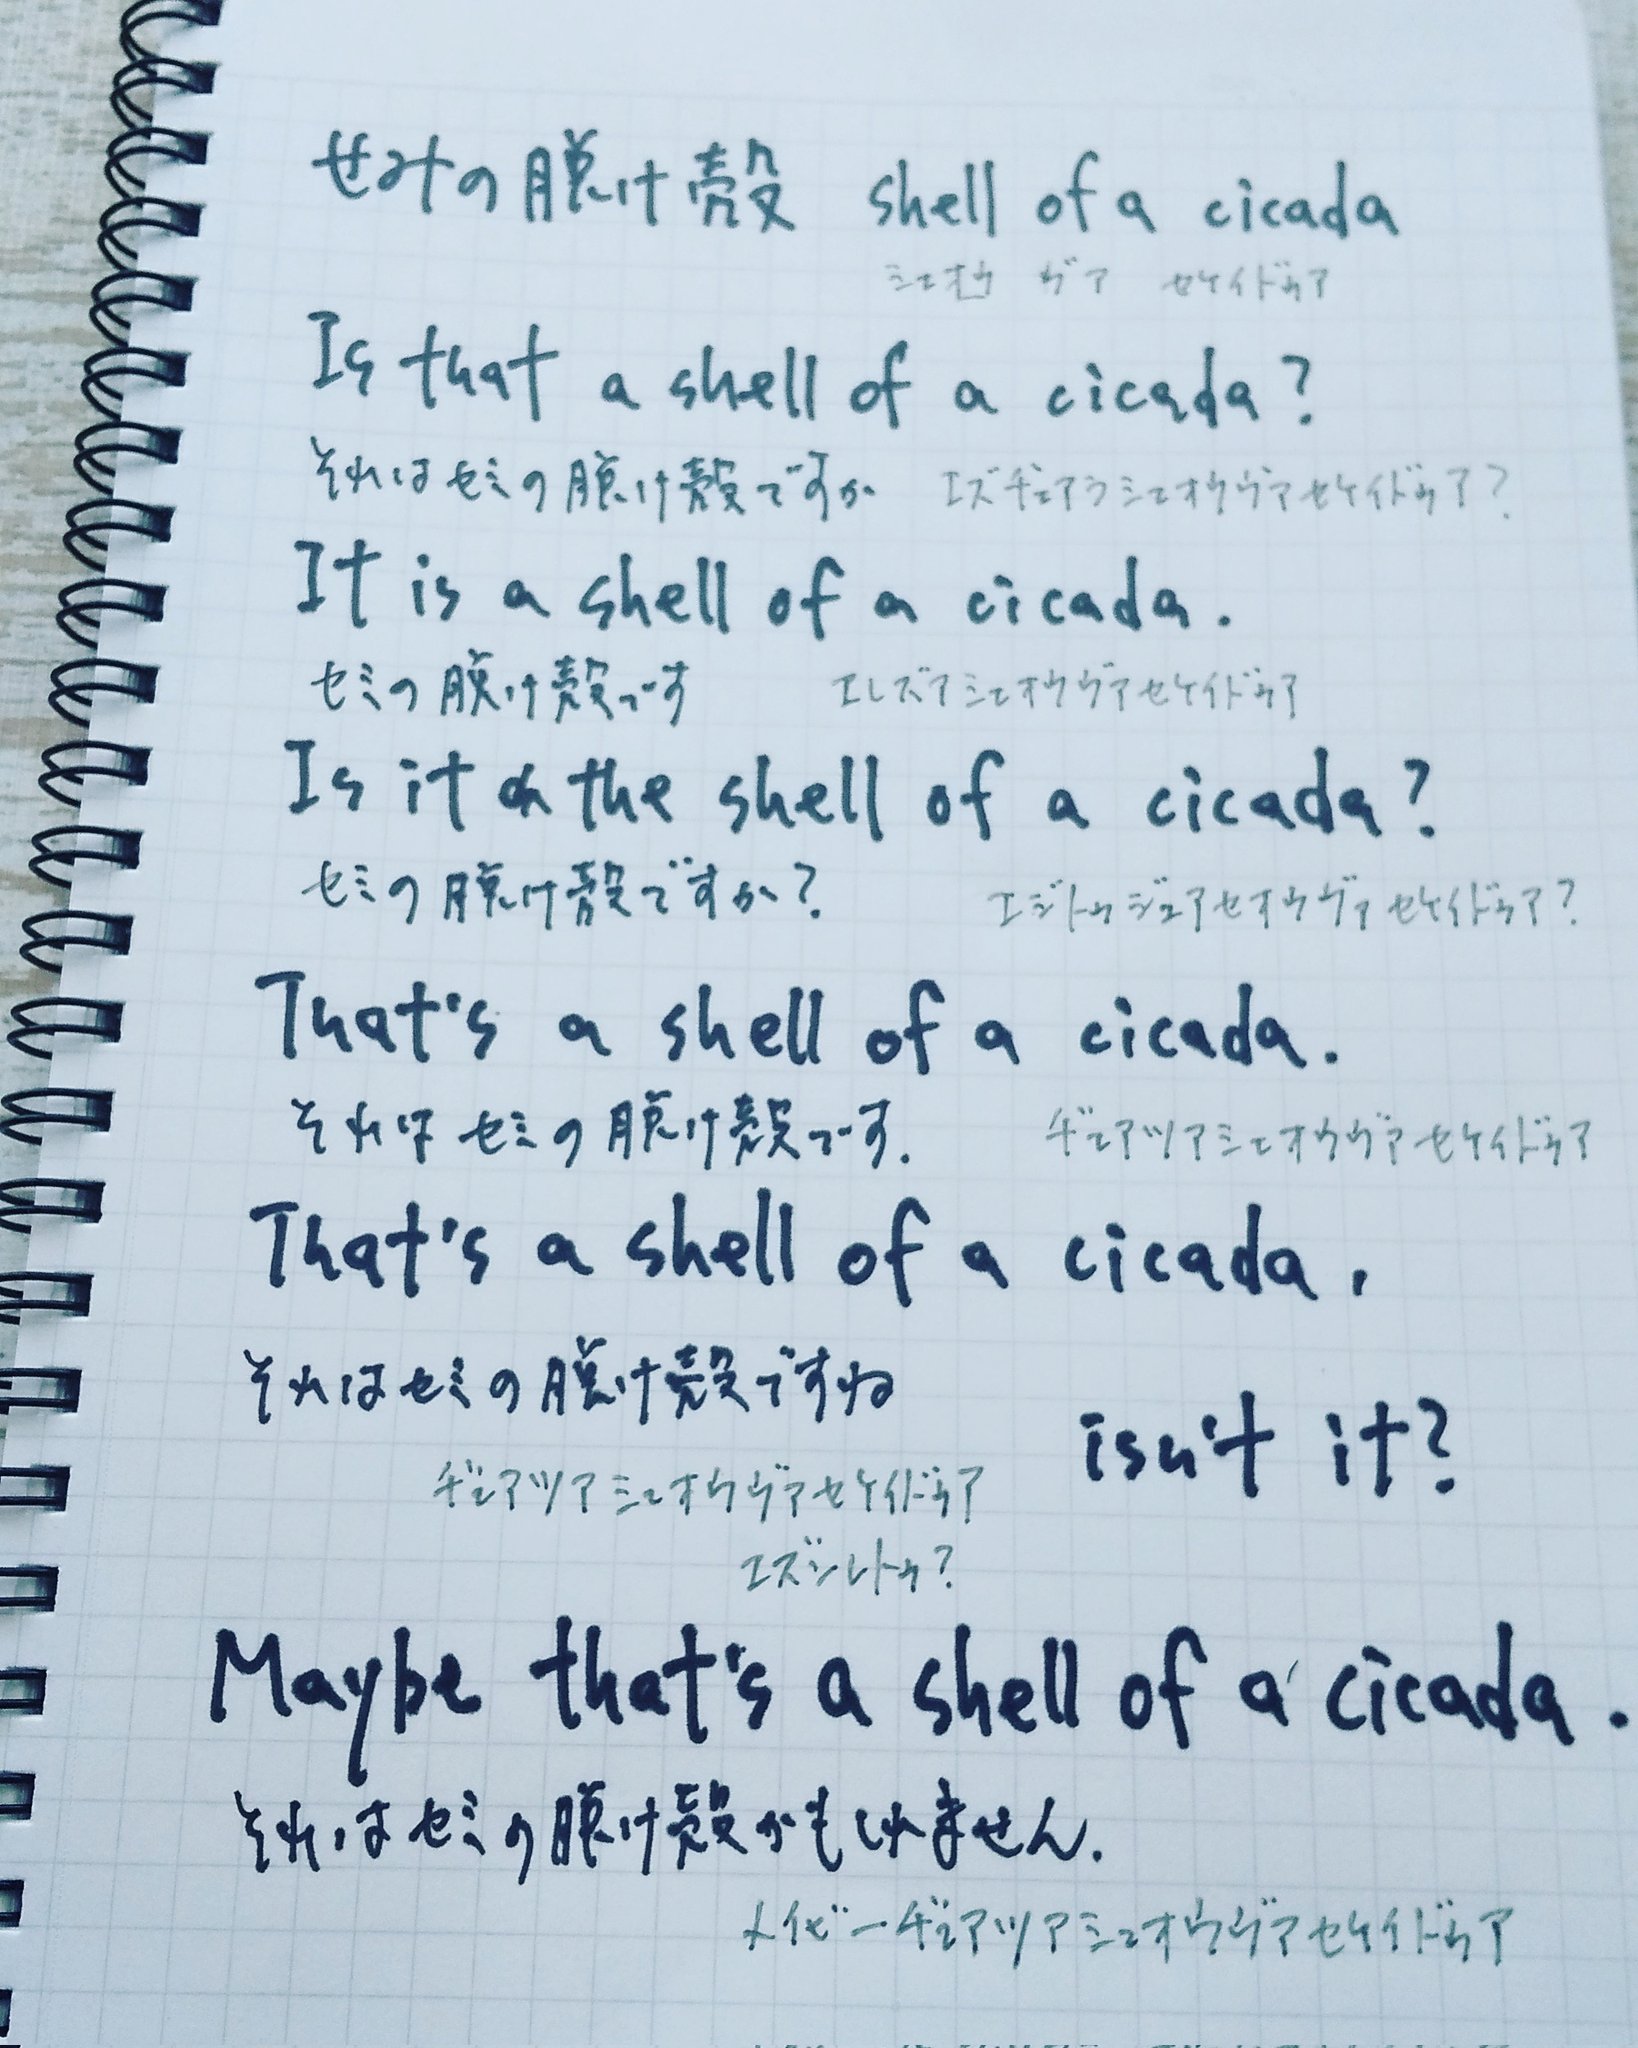 せみの脱け殻 shell of a cicada
シェオウ ヴア セケイドゥア
Is that a shell of a cicada?
それはセミの脱け殻ですか エズヂェアラシェオウヴアセケイドゥア?
It is a shell of a cicada.
セミの脱け殻です エレズアシェオウヴアセケイドゥア
Is it the shell of a cicada?
セミの脱け殻ですか? エジトゥジュアセオウヴァセケイドゥア?
That's a shell of a cicada.
それはセミの脱け殻です. ヂェアツアシェオウヴアセケイドゥア
That's a shell of a cicada,
それはセミの脱け殻ですね
isn't it?
ヂェアツアシェオウヴアセケイドゥア
エズンレトゥ?
Maybe that's a shell of a cicada.
それはセミの脱け殻かもしれません.
メイビーヂェアツアシェオウヴアセケイドゥア